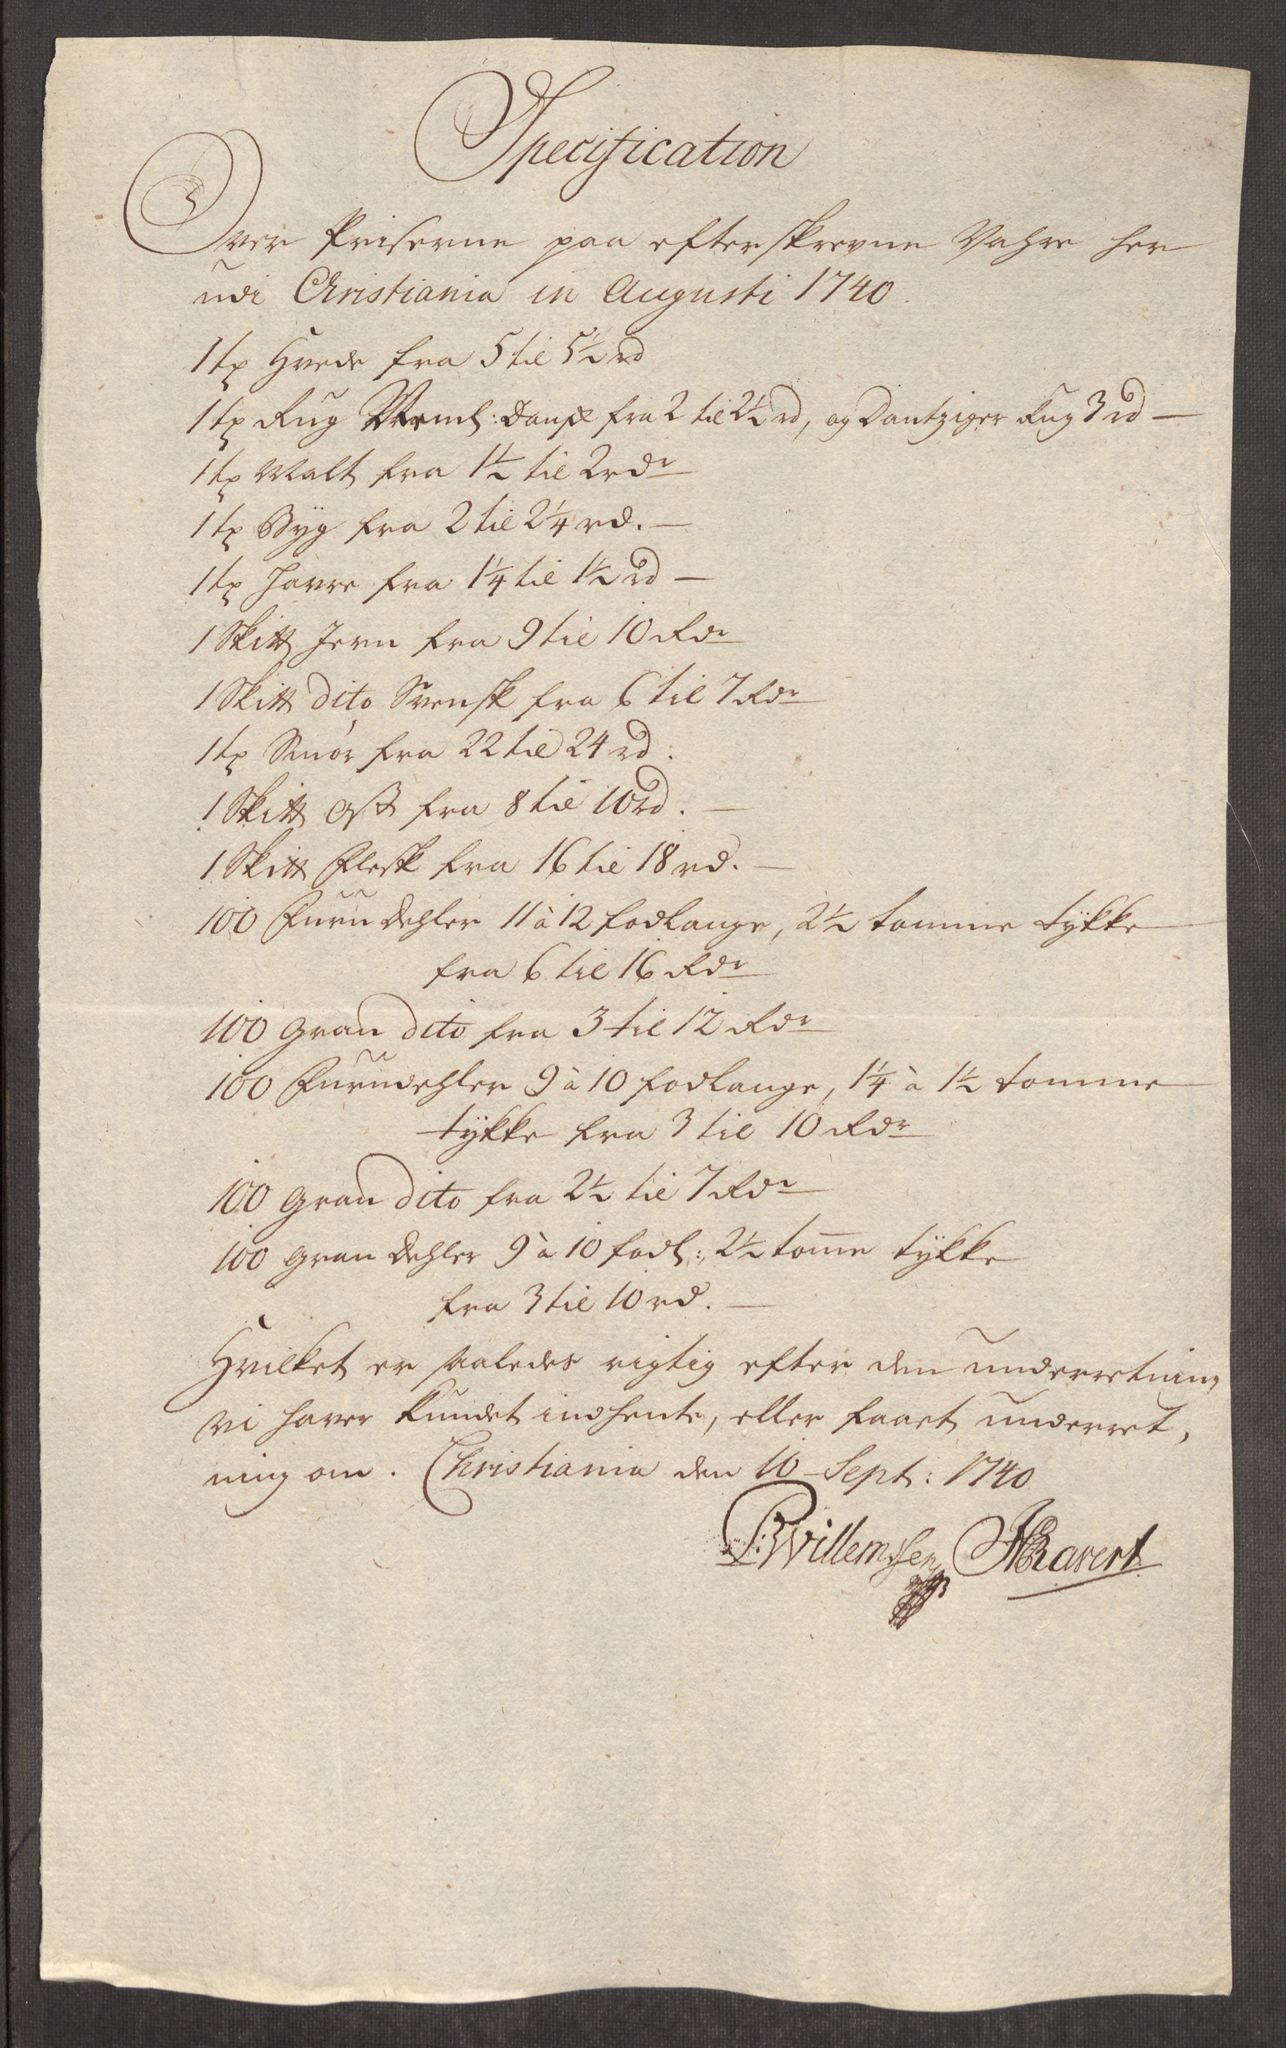 Specification
Over Priserne paa efterskrevne Vahre her
udi Christiania in Augusti 1740.
1 tp Hvede fra 5 til 5½ rd
1 tp Rug Neml: Dansk fra 2 til 2½ rd, og Dantziger Rug 3 rd —
1 tp Malt fra 1½ til 2 rdr
1 tp Byg fra 2 til 2¼ rd. —
1 tp Havre fra 1¼ til 1½ rd —
1 Skitt Jern fra 9 til 10 Rdr
1 Skitt dito Svensk fra 6 til 7 Rdr
1 tp Smør fra 22 til 24 rd.
1 Skitt Ost fra 8 til 10 rd. —
1 Skitt Flesk fra 16 til 18 rd. —
100 Furu Dehler 11 à 12 fodlange, 2½ tomme tykke
fra 6 til 16 Rdr
100 Gran dito fra 3 til 12 Rdr
100 Furudehler 9 à 10 fodlange, 1¼ à 1½ tomme
tykke fra 3 til 10 Rdr
100 Gran dito fra 2½ til 7 Rdr
100 Gran Dehler 9 à 10 fodl: 2½ tome tykke
fra 3 til 10 rd. —
Hvilket er saaledes rigtig efter den underretning
vi haver kundet indhente, eller faaet underret,
ning om. Christiania den 10 Sept: 1740
P:Willemssen Ravert